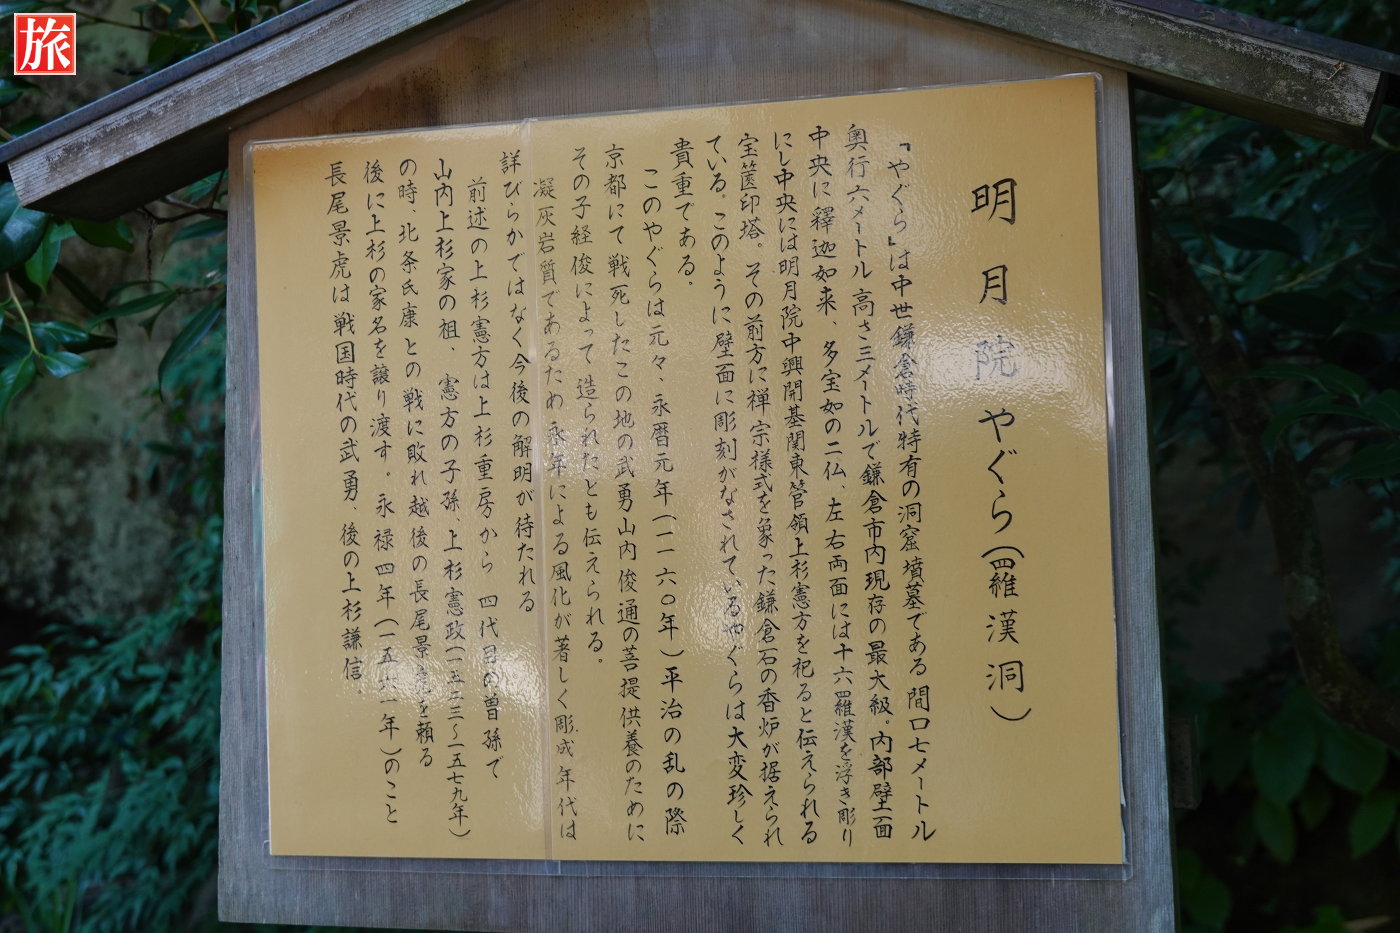 旅
明月院やぐら(羅漢洞)
『やぐら』は中世鎌倉時代特有の洞窟墳墓である間口七メートル
奥行六メートル高さ三メートルで鎌倉市内現存の最大級。内部壁面
中央に釋迦如来、多宝如の二仏、左右両面には十六羅漢を浮き彫り
にし中央には明月院中興開基関東管領上杉憲方を祀ると伝えられる
宝篋印塔。その前方に禅宗様式を象った鎌倉石の香炉が据えられ
ている。このように壁面に彫刻がなされているやぐらは大変珍しく
貴重である。
このやぐらは元々、永暦元年(一一六〇年)平治の乱の際
京都にて戦死したこの地の武勇山内俊通の菩提供養のために
その子経俊によって造られたとも伝えられる。
凝灰岩質であるため永年による風化が著しく彫成年代は
詳びらかではなく今後の解明が待たれる
前述の上杉憲方は上杉重房から 四代目の曽孫で
山内上杉家の祖、憲方の子孫、上杉憲政(一五二三〜一五七九年)
の時、北条氏康との戦に敗れ越後の長尾景虎を頼る
後に上杉の家名を譲り渡す。永禄四年(一五六一年)のこと
長尾景虎は戦国時代の武勇、後の上杉謙信。